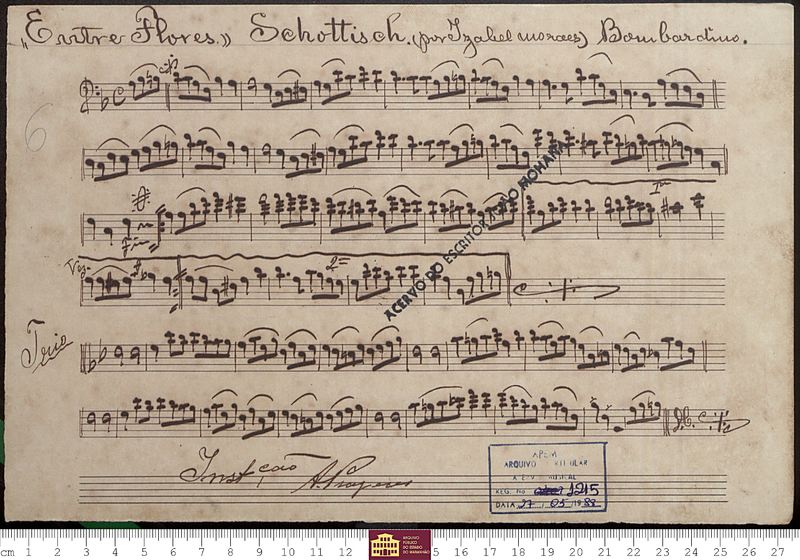 „Entre Flores.” Schottisch. (por Izabel moraes) Bombardino.
6
Fim
1ª
Vez.
2ª
Trio
D.C.
ACERVO DO ESCRITOR JOÃO MOHANA
APEM
ARQUIVO
REG. No. 1215
DATA 27 / 05 / 19 88
cm 1 2 3 4 5 6 7 8 9 10 11 12 5 16 17 18 19 20 21 22 23 24 25 26 27
ARQUIVO
PÚBLICO
DO ESTADO
DO MARANHÃO